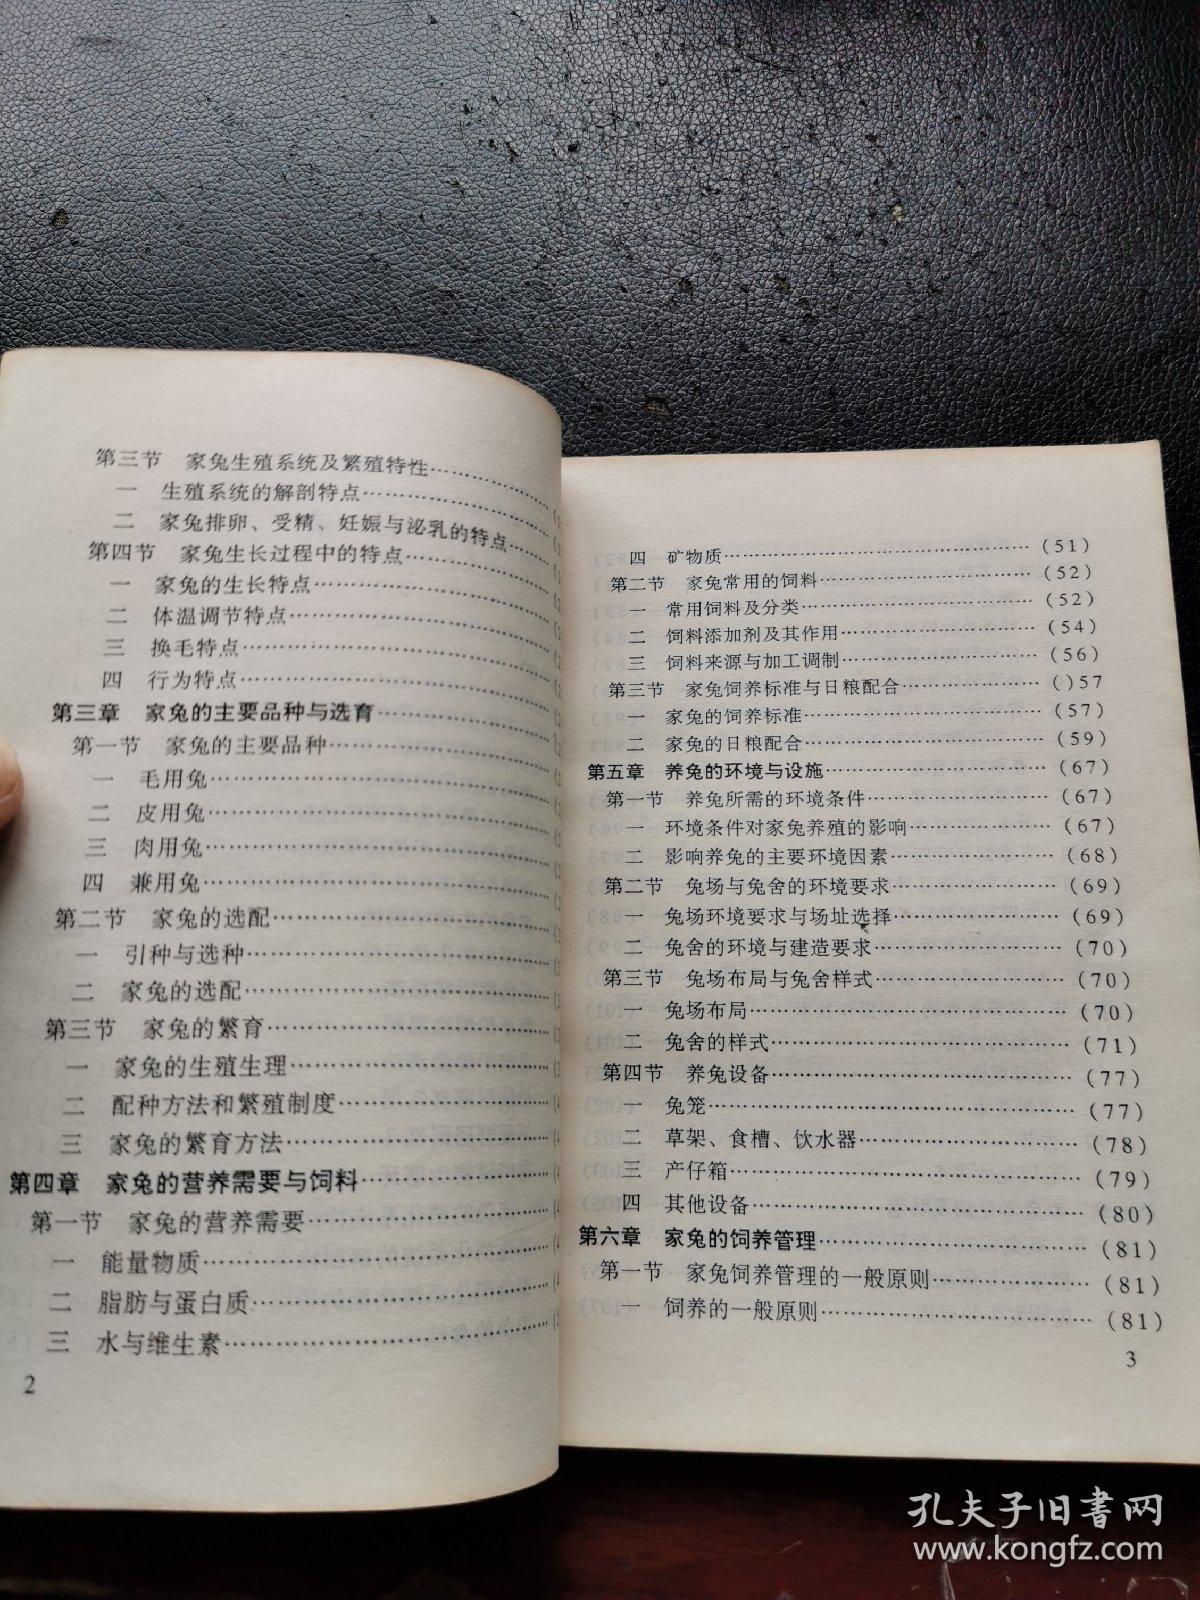 第三节 家兔生殖系统及繁殖特性……………
一 生殖系统的解剖特点……………
二 家兔排卵、受精、妊娠与泌乳的特点……
第四节 家兔生长过程中的特点……………
一 家兔的生长特点……………
二 体温调节特点……………
三 换毛特点……………
四 行为特点……………
第三章 家兔的主要品种与选育……………
第一节 家兔的主要品种……………
一 毛用兔……………
二 皮用兔……………
三 肉用兔……………
四 兼用兔……………
第二节 家兔的选配……………
一 引种与选种……………
二 家兔的选配……………
第三节 家兔的繁育……………
一 家兔的生殖生理……………
二 配种方法和繁殖制度……………
三 家兔的繁育方法……………
第四章 家兔的营养需要与饲料……………
第一节 家兔的营养需要……………
一 能量物质……………
二 脂肪与蛋白质……………
三 水与维生素……………
2
四 矿物质……………(51)
第二节 家兔常用的饲料……………(52)
一 常用饲料及分类……………(52)
二 饲料添加剂及其作用……………(54)
三 饲料来源与加工调制……………(56)
第三节 家兔饲养标准与日粮配合……………()57
一 家兔的饲养标准……………(57)
二 家兔的日粮配合……………(59)
第五章 养兔的环境与设施……………(67)
第一节 养兔所需的环境条件……………(67)
一 环境条件对家兔养殖的影响……………(67)
二 影响养兔的主要环境因素……………(68)
第二节 兔场与兔舍的环境要求……………(69)
一 兔场环境要求与场址选择……………(69)
二 兔舍的环境与建造要求……………(70)
第三节 兔场布局与兔舍样式……………(70)
一 兔场布局……………(70)
二 兔舍的样式……………(71)
第四节 养兔设备……………(77)
一 兔笼……………(77)
二 草架、食槽、饮水器……………(78)
三 产仔箱……………(79)
四 其他设备……………(80)
第六章 家兔的饲养管理……………(81)
第一节 家兔饲养管理的一般原则……………(81)
一 饲养的一般原则……………(81)
3
孔夫子旧书网
www.kongfz.com